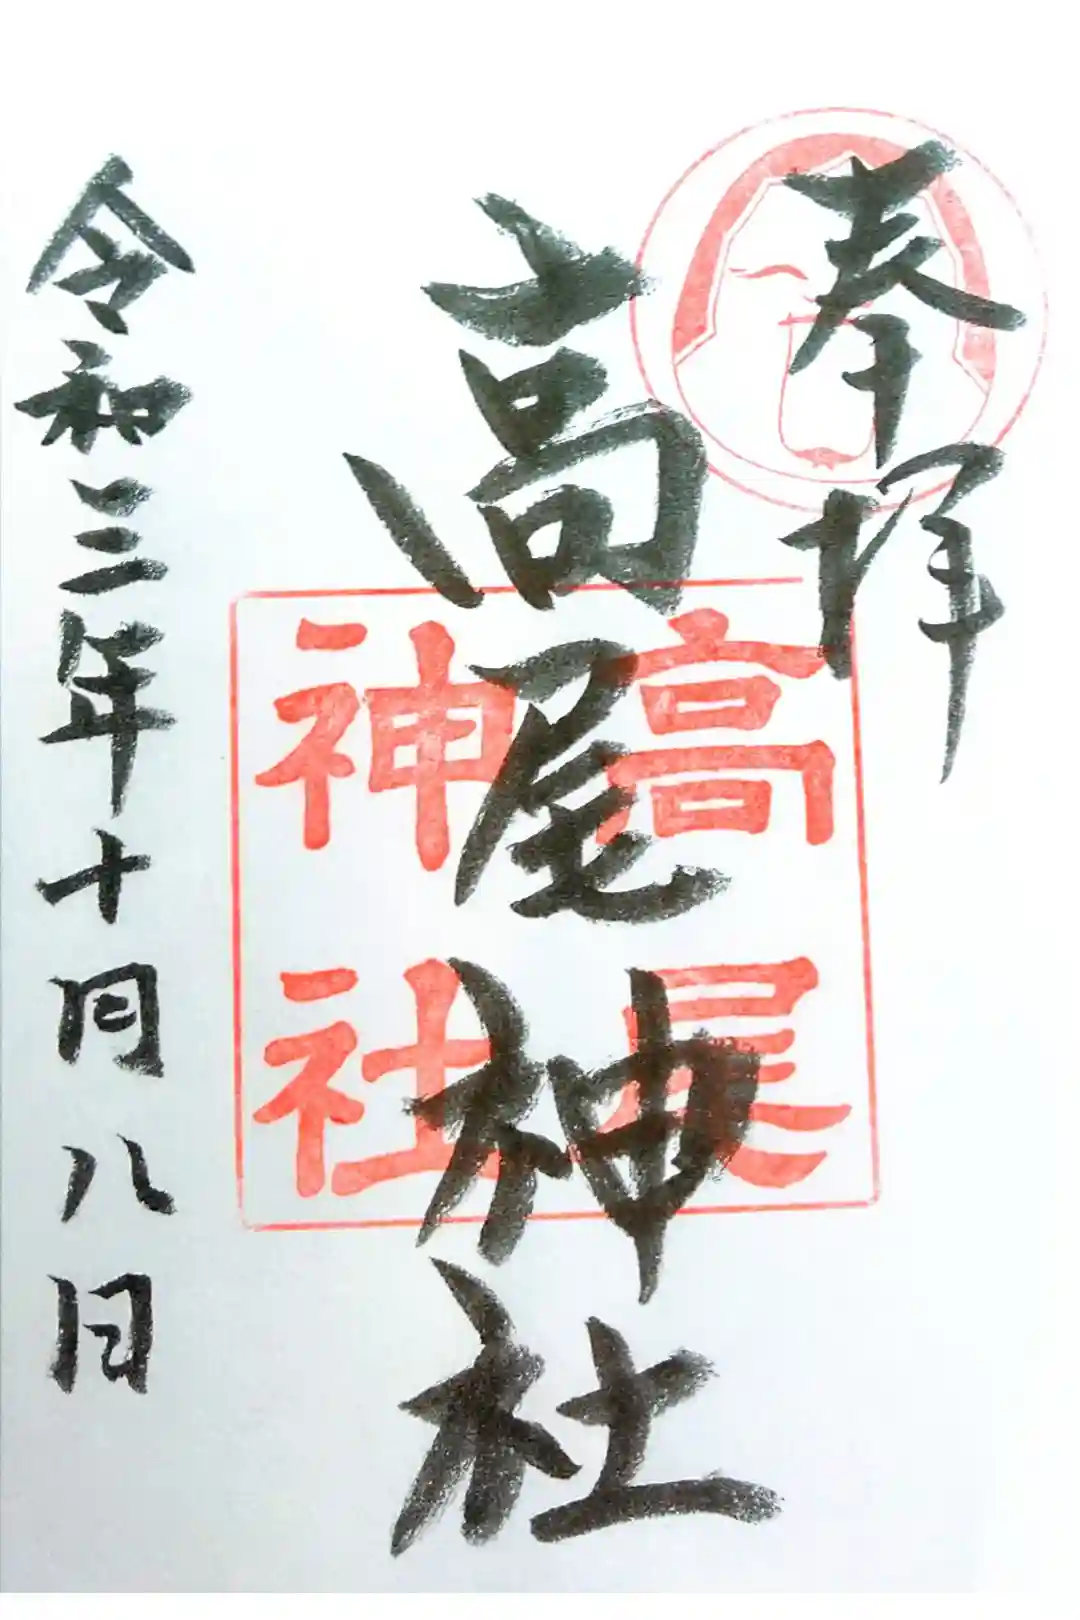 奉拝
高尾神社
高
神社
令和三年十月八日